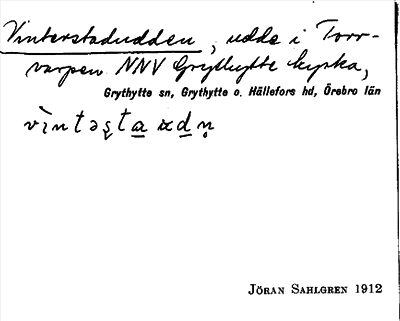 Vinterstadudden, udde i Torr-
varpen NNV Grythytte kyrka,
Grythytte sn, Grythytte o. Hällefors hd, Örebro län
JÖRAN SAHLGREN 1912